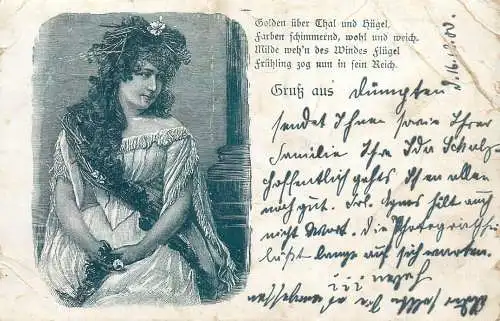 Golden über Thal und Hügel,
Farben schimmernd, wohl und weich.
Milde weh'n des Windes Flügel
Frühling zog nun in sein Reich.
Gruß aus Dümpten d. 16.
sendet Ihnen sowie Ihrer
Familie Ihre Ida Schulz
hoffentlich gehts Ihnen allen
noch gut. Frl. Agnes hält auch
nicht Wort. Die Photographie
läßt lange auf sich warten.